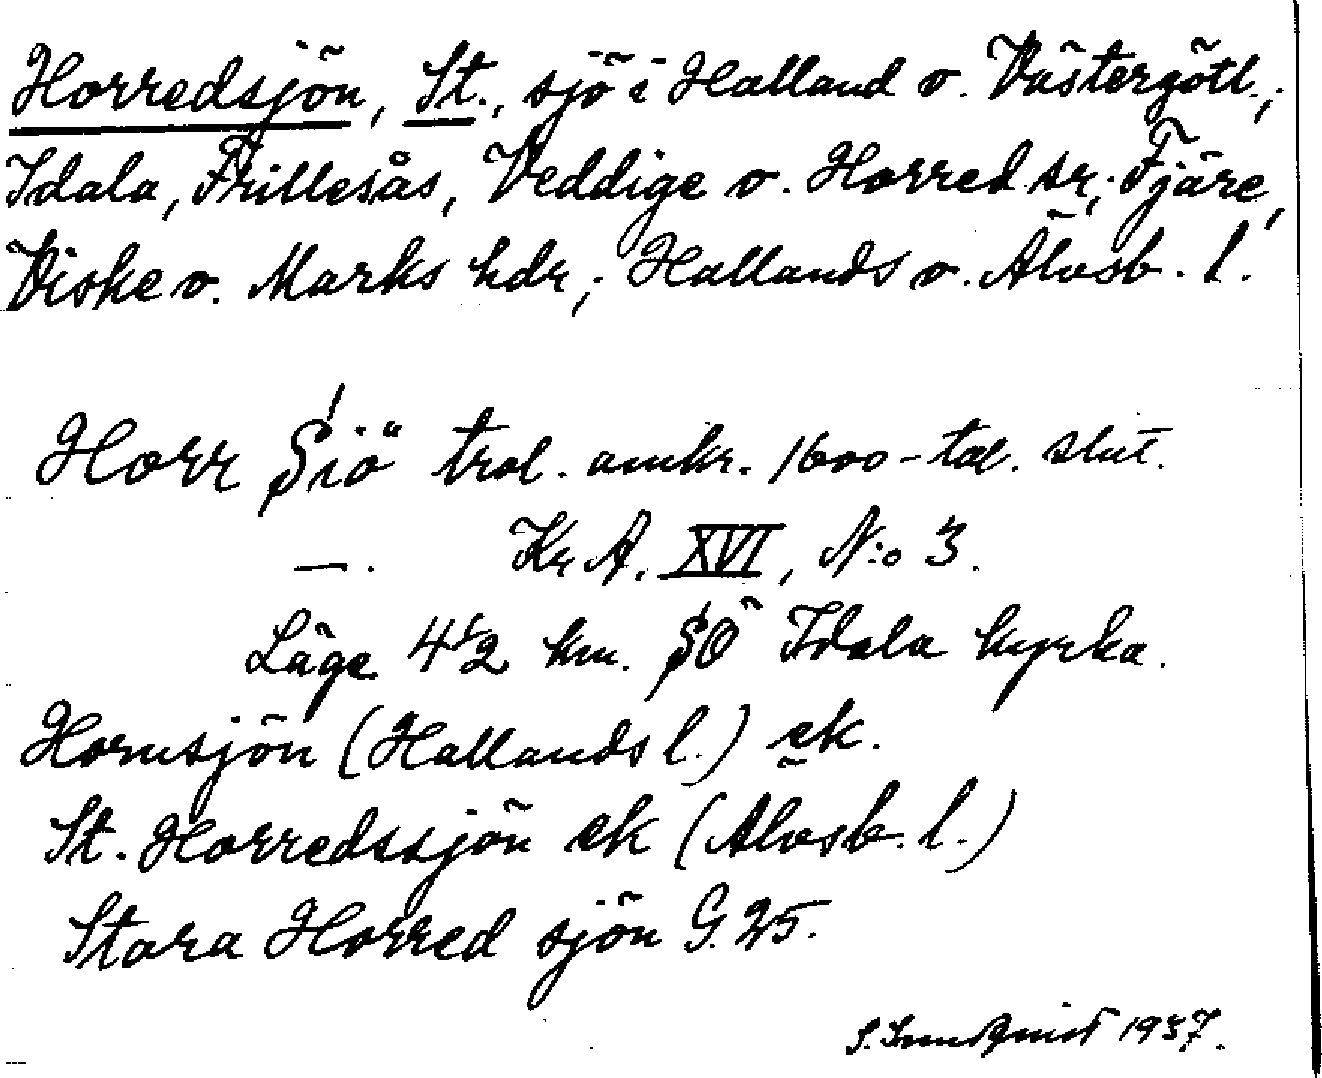 Horredsjön, St., sjö i Halland o. Västergötl.;
Idala, Frillesås, Veddige o. Horred sr; Fjäre,
Viske o. Marks hdr; Hallands o. Älvsb. l.
Horr Siö trol. omkr. 1600-tal. slut.
—. Kr A. XVI, N:o 3.
Läge 4 1/2 km. SÖ Idala kyrka.
Hornsjön (Hallands l.) ek.
St. Horredssjön ek (Älvsb. l.)
Stora Horred sjön G. 25.
S. Sundquist 1937.